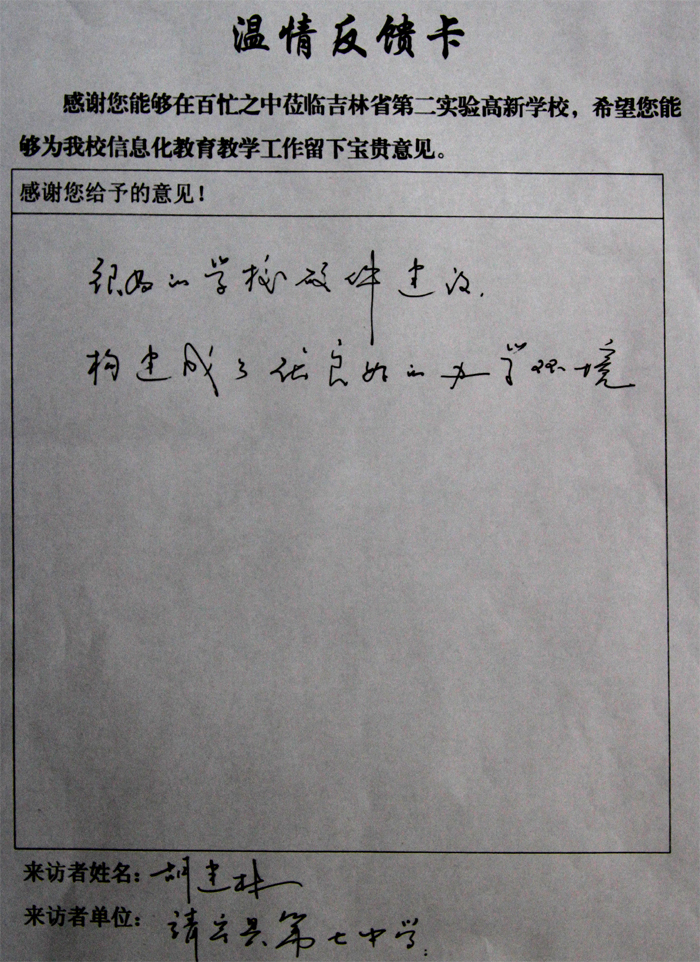 温情反馈卡
感谢您能够在百忙之中莅临吉林省第二实验高新学校，希望您能
够为我校信息化教育教学工作留下宝贵意见。
感谢您给予的意见！
很好的学校硬件建设.
构建成了优良好的办学环境
来访者姓名：胡建林
来访者单位：靖宇县第七中学.